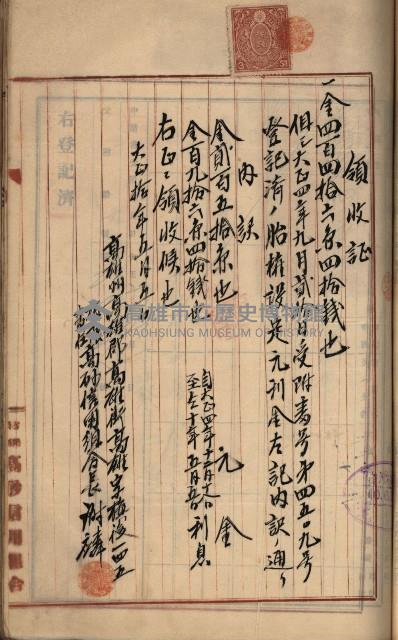 領收証
一金四百四拾六円四拾銭也
但シ大正四年九月貳拾日受附番号第四五〇九号
登記済ノ胎権設定元利金左記内訳ノ通リ
内訳
金貳百五拾円也 元金
金百九拾六円四拾銭也 利息
自大正四年十二月
至仝十年五月五日
右正ニ領收候也
大正拾年五月五日
高雄州高雄郡高雄街高雄字旗後一四五
高砂信用組合長
右登記済
高砂信用組合
高雄市立歷史博物館
KAOHSIUNG MUSEUM OF HISTORY